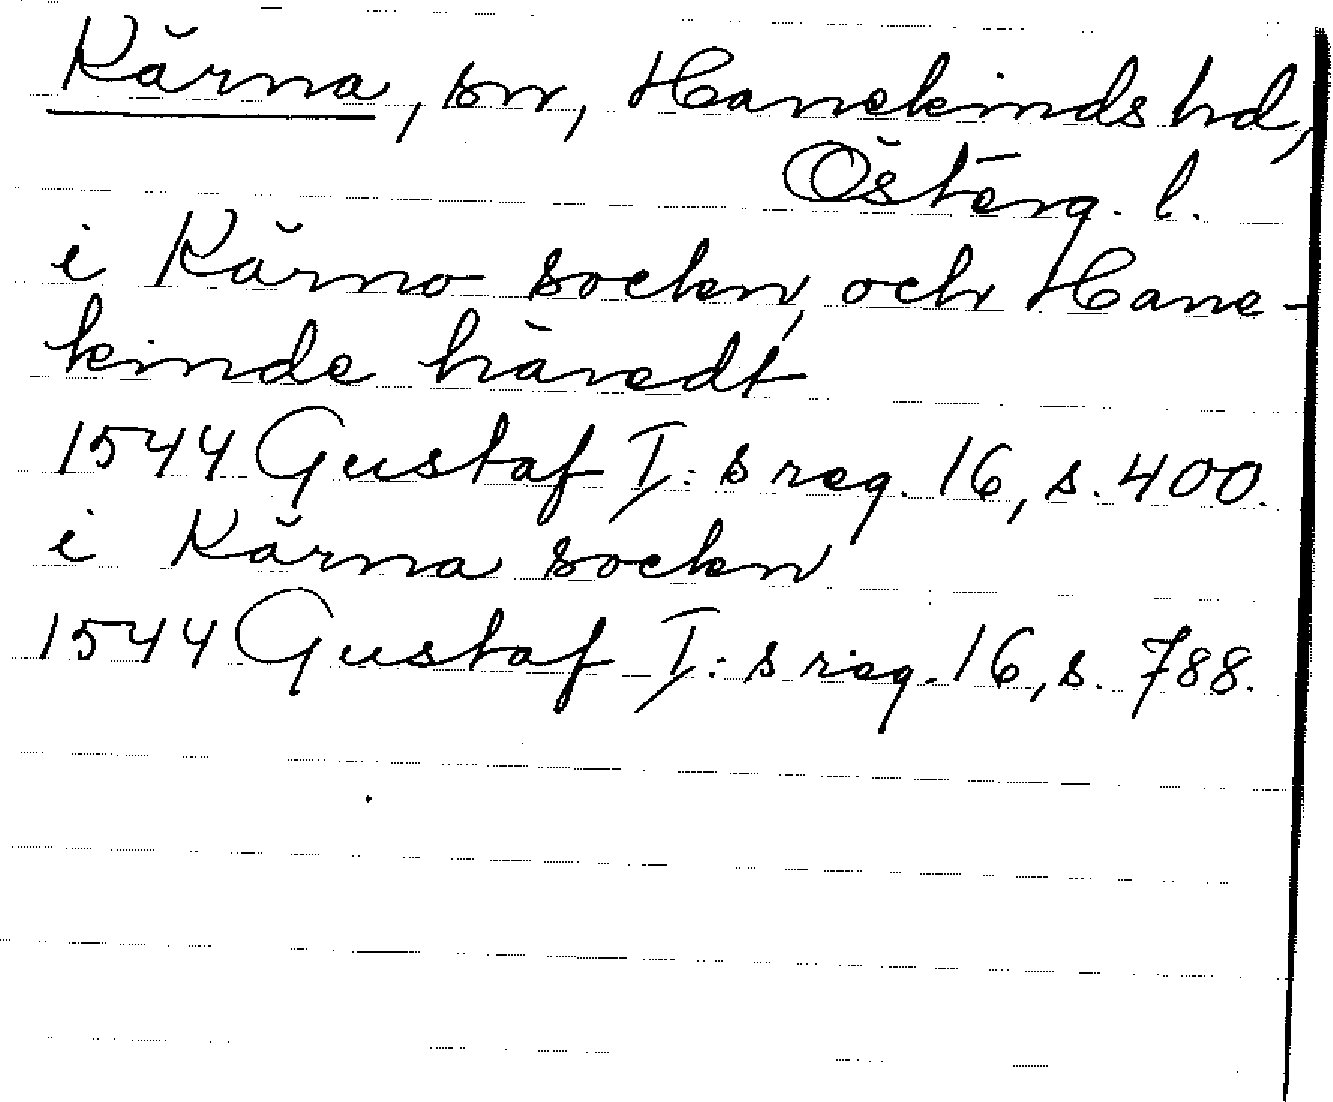 Kärna, sn, Hanekinds hd,
Österg. l.
i Kärno socken och Hane-
kinde häredt
1544 Gustaf I:s reg. 16, s. 400.
i Kärna socken
1544 Gustaf I:s reg. 16, s. 788.